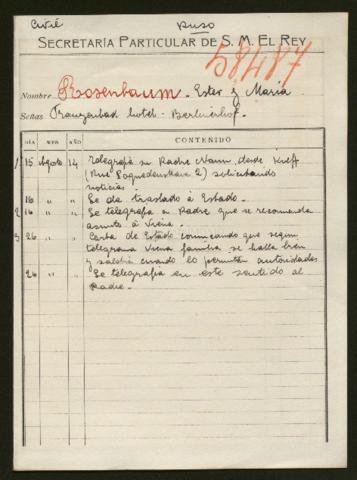 Civil Ruso
SECRETARÍA PARTICULAR DE S. M. EL REY
58487
Nombre Rosenbaum. Ester y Maria
Señas Franzenbad hotel - Berlinerhof.
DÍA MES AÑO CONTENIDO
1 15 Agosto 14 Telegrafía su Padre Naum, desde Kieff
(Rue 2) solicitando
noticia.
16 " " Se da traslado á Estado.
2 16 " " Se telegrafía a Padre que se recomienda
asunto á Viena.
3 26 " " Carta de Estado comunicando que segun
telegrama Viena familia se halla bien
y saldrá cuando lo permitan autoridades
26 " " Se telegrafía en este sentido al
Padre.